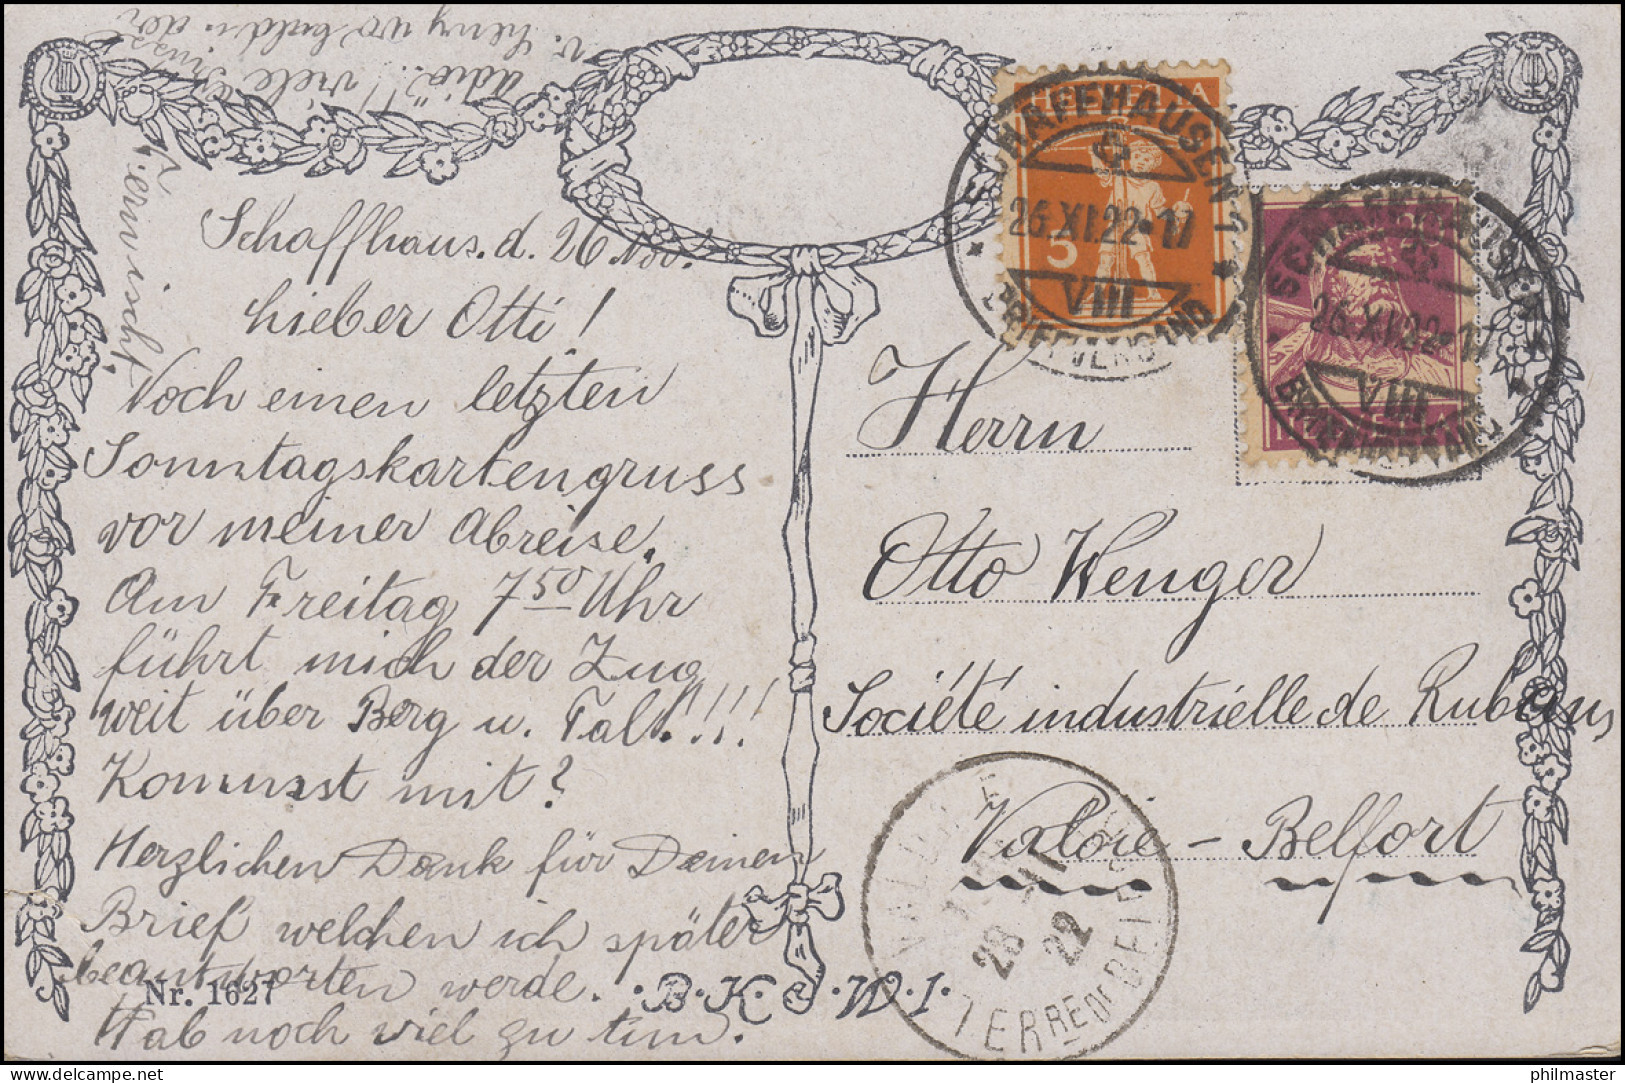 Schaffhaus. d. 26 Nov.
Lieber Otti!
Noch einen letzten
Sonntagskartengruss
vor meiner Abreise.
Am Freitag 7 50 Uhr
führt mich der Zug
weit über Berg u. Tal!!!!
Kommst mit?
Herzlichen Dank für Deinen
Brief welchen ich später
beantworten werde.
Hab noch viel zu tun.
adiö!! viele
verwischt!
HELVETIA
5
SCHAFFHAUSEN 1
26.XI.22-17
VIII
BRIEFVERSAND
20
SCHAFFHAUSEN 1
26.XI.22-17
VIII
BRIEFVERSAND
Herrn
Otto Wenger
Société industrielle de Rubans,
Valoie - Belfort
VALDOIE
28 -11
22
TERRE DE BELFORT
Nr. 1627
·B·K·W·I·
delcampe.net
philmaster